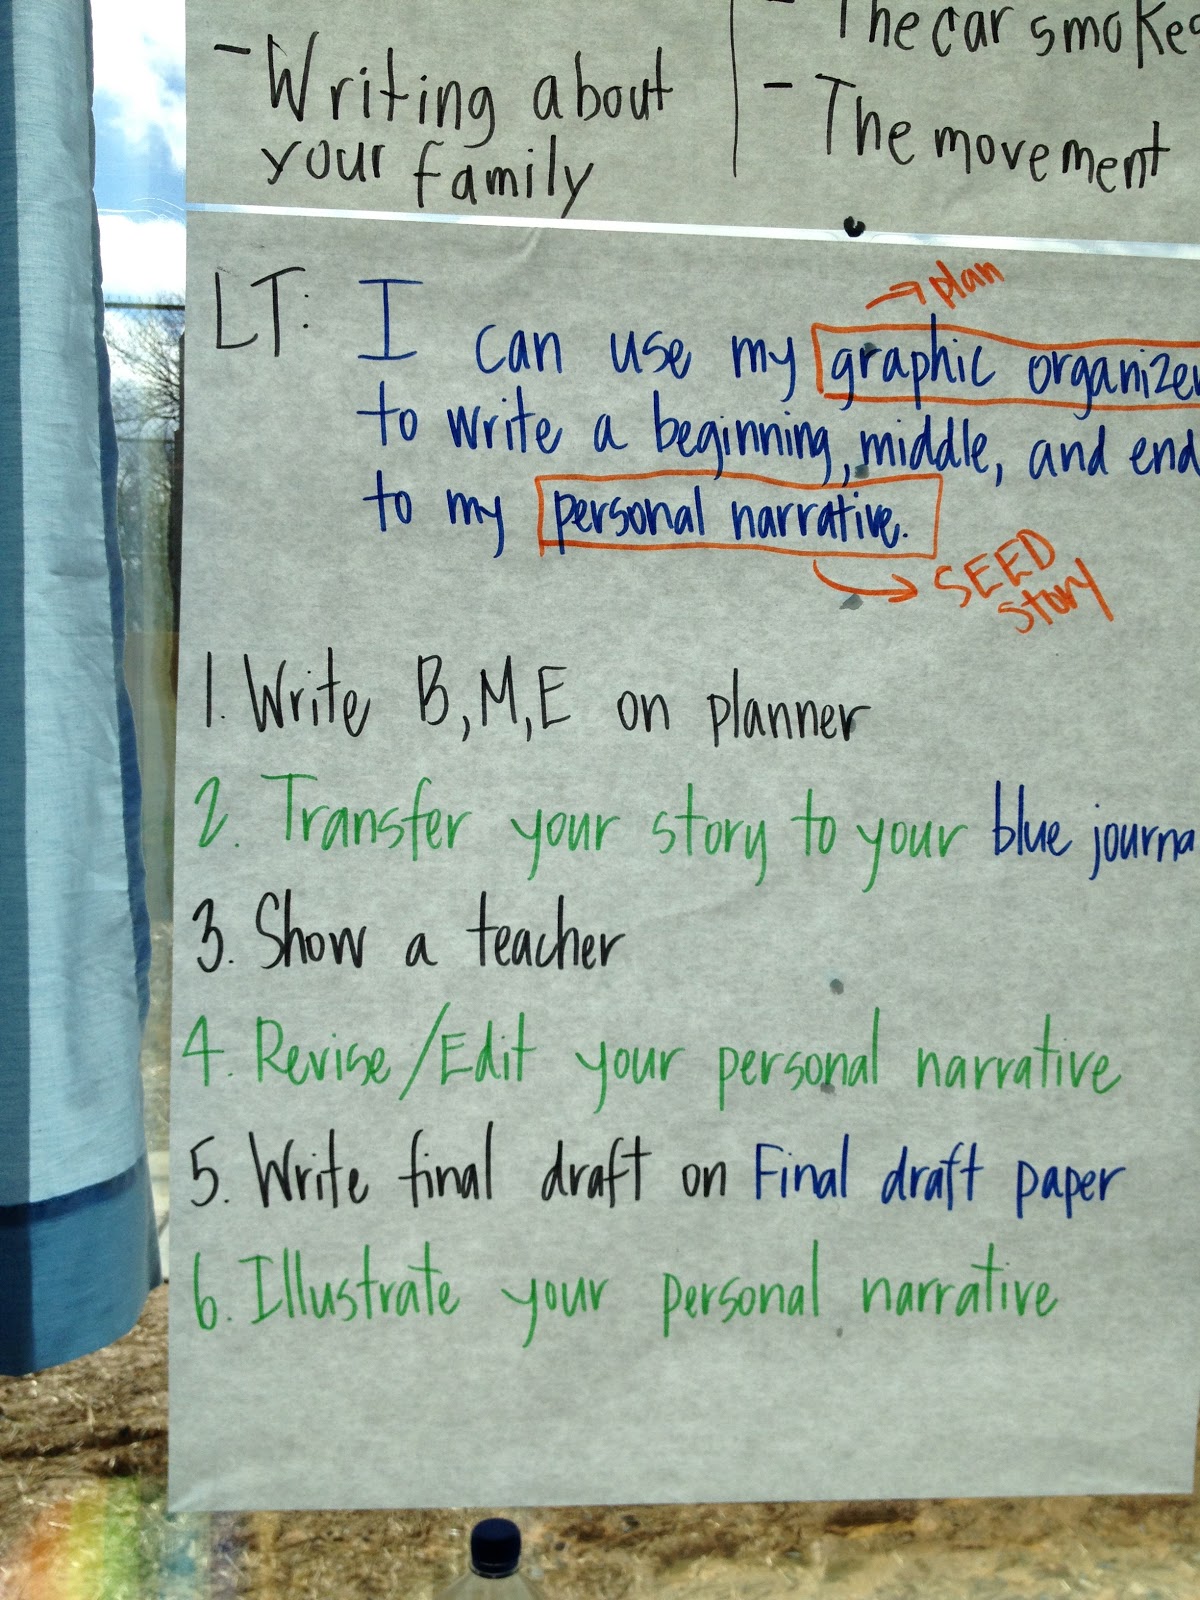 - Writing about
your family
- The car smokes
- The movement
→ plan
LT: I can use my graphic organizer
to write a beginning, middle, and end
to my personal narrative.
→ SEED
story
1. Write B, M, E on planner
2. Transfer your story to your blue journa
3. Show a teacher
4. Revise/Edit your personal narrative
5. Write final draft on Final draft paper
6. Illustrate your personal narrative